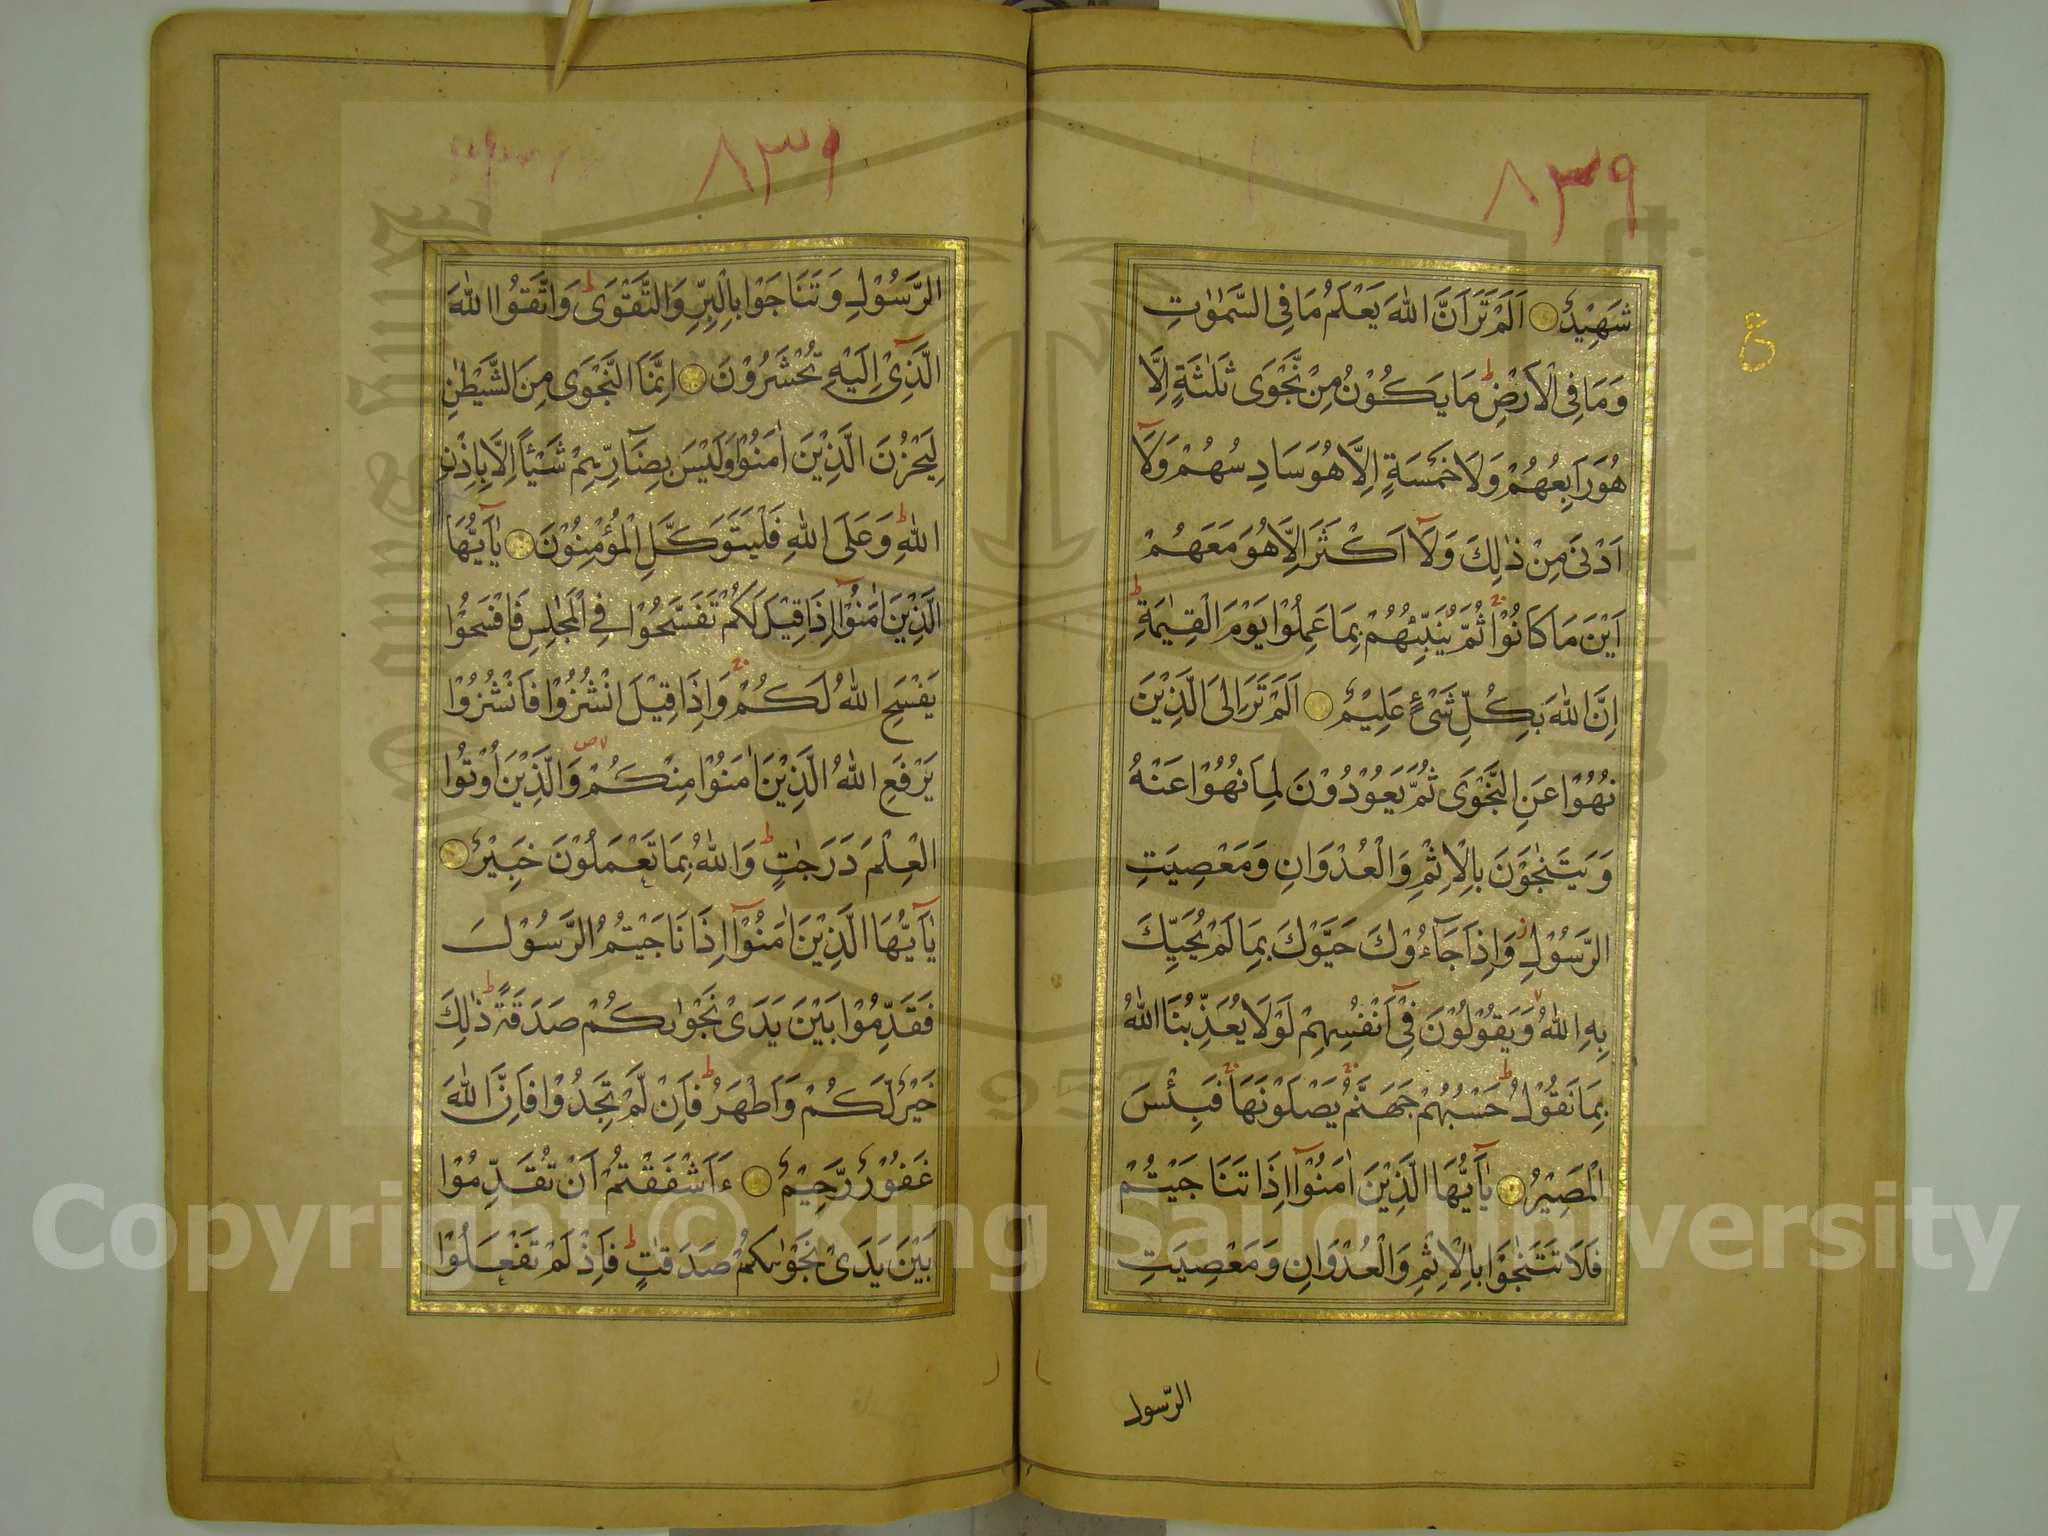 ٨٣٩
شَهِيْدٌ اَلَمْ تَرَ اَنَّ اللّٰهَ يَعْلَمُ مَا فِى السَّمٰوٰتِ
وَمَا فِى الْاَرْضِ ط مَا يَكُوْنُ مِنْ نَّجْوٰى ثَلٰثَةٍ اِلَّا
هُوَ رَابِعُهُمْ وَلَا خَمْسَةٍ اِلَّا هُوَ سَادِسُهُمْ وَلَآ
اَدْنٰى مِنْ ذٰلِكَ وَلَآ اَكْثَرَ اِلَّا هُوَ مَعَهُمْ
اَيْنَ مَا كَانُوْا ج ثُمَّ يُنَبِّئُهُمْ بِمَا عَمِلُوْا يَوْمَ الْقِيٰمَةِ ط
اِنَّ اللّٰهَ بِكُلِّ شَىْءٍ عَلِيْمٌ اَلَمْ تَرَ اِلَى الَّذِيْنَ
نُهُوْا عَنِ النَّجْوٰى ثُمَّ يَعُوْدُوْنَ لِمَا نُهُوْا عَنْهُ
وَيَتَنٰجَوْنَ بِالْاِثْمِ وَالْعُدْوَانِ وَمَعْصِيَتِ
الرَّسُوْلِ ز وَاِذَا جَآءُوْكَ حَيَّوْكَ بِمَا لَمْ يُحَيِّكَ
بِهِ اللّٰهُ وَيَقُوْلُوْنَ فِىْٓ اَنْفُسِهِمْ لَوْلَا يُعَذِّبُنَا اللّٰهُ
بِمَا نَقُوْلُ ط حَسْبُهُمْ جَهَنَّمُ ج يَصْلَوْنَهَا ج فَبِئْسَ
الْمَصِيْرُ يٰٓاَيُّهَا الَّذِيْنَ اٰمَنُوْٓا اِذَا تَنَاجَيْتُمْ
فَلَا تَتَنٰجَوْا بِالْاِثْمِ وَالْعُدْوَانِ وَمَعْصِيَتِ
الرّسول
٨٣٩
الرَّسُوْلِ وَتَنَاجَوْا بِالْبِرِّ وَالتَّقْوٰى ط وَاتَّقُوا اللّٰهَ
الَّذِىْٓ اِلَيْهِ تُحْشَرُوْنَ اِنَّمَا النَّجْوٰى مِنَ الشَّيْطٰنِ
لِيَحْزُنَ الَّذِيْنَ اٰمَنُوْا وَلَيْسَ بِضَآرِّهِمْ شَيْـًٔا اِلَّا بِاِذْنِ
اللّٰهِ ط وَعَلَى اللّٰهِ فَلْيَتَوَكَّلِ الْمُؤْمِنُوْنَ يٰٓاَيُّهَا
الَّذِيْنَ اٰمَنُوْٓا اِذَا قِيْلَ لَكُمْ تَفَسَّحُوْا فِى الْمَجٰلِسِ فَافْسَحُوْا
يَفْسَحِ اللّٰهُ لَكُمْ ج وَاِذَا قِيْلَ انْشُزُوْا فَانْشُزُوْا
يَرْفَعِ اللّٰهُ الَّذِيْنَ اٰمَنُوْا مِنْكُمْ وَالَّذِيْنَ اُوْتُوا
الْعِلْمَ دَرَجٰتٍ ط وَاللّٰهُ بِمَا تَعْمَلُوْنَ خَبِيْرٌ
يٰٓاَيُّهَا الَّذِيْنَ اٰمَنُوْٓا اِذَا نَاجَيْتُمُ الرَّسُوْلَ
فَقَدِّمُوْا بَيْنَ يَدَىْ نَجْوٰىكُمْ صَدَقَةً ط ذٰلِكَ
خَيْرٌ لَّكُمْ وَاَطْهَرُ ط فَاِنْ لَّمْ تَجِدُوْا فَاِنَّ اللّٰهَ
غَفُوْرٌ رَّحِيْمٌ ءَاَشْفَقْتُمْ اَنْ تُقَدِّمُوْا
بَيْنَ يَدَىْ نَجْوٰىكُمْ صَدَقٰتٍ ط فَاِذْ لَمْ تَفْعَلُوْا
Copyright © King Saud University